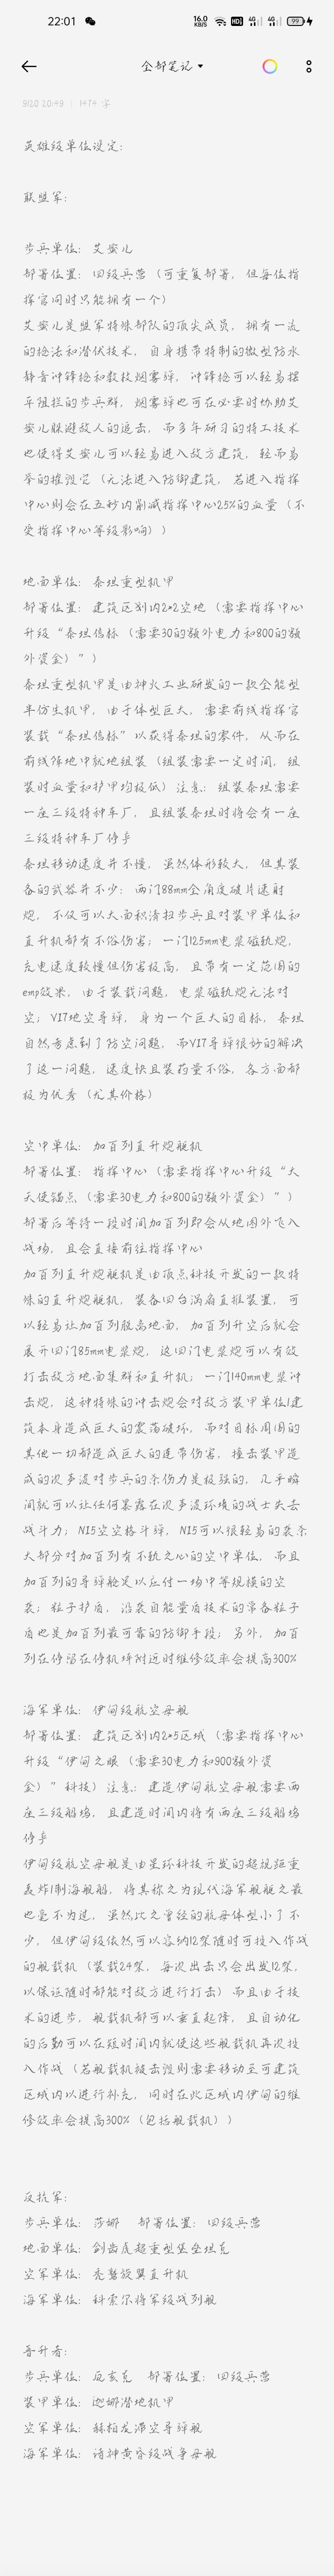 22:01
16.0 KB/S
HD
4G
4G
99
全部笔记
9/20 20:49 | 1474 字
英雄级单位设定:
联盟军:
步兵单位: 艾蜜儿
部署位置: 四级兵营 (可重复部署, 但每位指
挥官同时只能拥有一个)
艾蜜儿是盟军特殊部队的顶尖成员, 拥有一流
的枪法和潜伏技术, 自身携带特制的微型防水
静音冲锋枪和数枚烟雾弹, 冲锋枪可以轻易摆
平阻拦的步兵群, 烟雾弹也可在必要时协助艾
蜜儿躲避敌人的追击, 而多年研习的特工技术
也使得艾蜜儿可以轻易进入敌方建筑, 轻而易
举的摧毁它 (无法进入防御建筑, 若进入指挥
中心则会在五秒内削减指挥中心25%的血量 (不
受指挥中心等级影响) )
地面单位: 泰坦重型机甲
部署位置: 建筑区划内2*2空地 (需要指挥中心
升级“泰坦信标 (需要30的额外电力和800的额
外资金) ” )
泰坦重型机甲是由神火工业研发的一款全能型
半仿生机甲, 由于体型巨大, 需要前线指挥官
装载“泰坦信标”以获得泰坦的零件, 从而在
前线阵地中就地组装 (组装需要一定时间, 组
装时血量和护甲均极低) 注意: 组装泰坦需要
一座三级特种车厂, 且组装泰坦时将会有一座
三级特种车厂停产
泰坦移动速度并不慢, 虽然体形较大, 但其装
备的武器并不少: 两门88mm全角度破片速射
炮, 不仅可以大面积清扫步兵且对装甲单位和
直升机都有不俗伤害; 一门125mm电浆磁轨炮,
充电速度较慢但伤害极高, 且带有一定范围的
emp效果, 由于装载问题, 电浆磁轨炮无法对
空; V17地空导弹, 身为一个巨大的目标, 泰坦
自然考虑到了防空问题, 而V17导弹很好的解决
了这一问题, 速度快且装药量不俗, 各方面都
极为优秀 (尤其价格)
空中单位: 加百列直升炮艇机
部署位置: 指挥中心 (需要指挥中心升级“大
天使锚点 (需要30电力和800的额外资金) ” )
部署后等待一段时间加百列即会从地图外飞入
战场, 且会直接前往指挥中心
加百列直升炮艇机是由顶点科技开发的一款特
殊的直升炮艇机, 装备四台涡扇直推装置, 可
以轻易让加百列脱离地面, 加百列升空后就会
展开四门85mm电浆炮, 这四门电浆炮可以有效
打击敌方地面集群和直升机; 一门140mm电浆冲
击炮, 这种特殊的冲击炮会对敌方装甲单位/建
筑本身造成巨大的震荡破坏, 而对目标周围的
其他一切都造成巨大的连带伤害, 撞击装甲造
成的次声波对步兵的杀伤力是极强的, 几乎瞬
间就可以让任何暴露在次声波环境的战士失去
战斗力; N15空空格斗弹, N15可以很轻易的袭杀
大部分对加百列有不轨之心的空中单位, 而且
加百列的导弹舱足以应付一场中等规模的空
袭; 粒子护盾, 沿袭自能量盾技术的常备粒子
盾也是加百列最可靠的防御手段; 另外, 加百
列在停留在停机坪附近时维修效率会提高300%
海军单位: 伊甸级航空母舰
部署位置: 建筑区划内2*5区域 (需要指挥中心
升级“伊甸之眼 (需要30电力和900额外资
金) ”科技) 注意: 建造伊甸航空母舰需要两
座三级船坞, 且建造时间内将有两座三级船坞
停产
伊甸级航空母舰是由星环科技开发的超视距重
轰炸/制海舰船, 将其称之为现代海军舰艇之最
也毫不为过, 虽然比之曾经的航母体型小了不
少, 但伊甸级依然可以容纳12架随时可投入作战
的舰载机 (装载24架, 每次出击只会出发12架,
以保证随时都能对敌方进行打击) 而且由于技
术的进步, 舰载机都可以垂直起降, 且自动化
的后勤可以在短时间内就使这些舰载机再次投
入作战 (若舰载机被击毁则需要移动至可建筑
区域内以进行补充, 同时在此区域内伊甸的维
修效率会提高300% (包括舰载机) )
反抗军:
步兵单位: 莎娜 部署位置: 四级兵营
地面单位: 剑齿虎超重型堡垒坦克
空军单位: 秃鹫旋翼直升机
海军单位: 科索尔将军级战列舰
晋升者:
步兵单位: 反亥克 部署位置: 四级兵营
装甲单位: 迦娜潜地机甲
空军单位: 赫柏龙滞空导弹舰
海军单位: 诸神黄昏级战争母舰